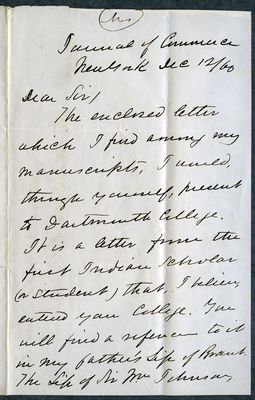 Journal of Commerce
New York Dec 12/60
Dear Sir,
The enclosed letter
which I find among my
manuscripts, I would,
through yourself, present
to Dartmouth College.
It is a letter from the
first Indian Scholar
(or Student) that, I believe,
entered your College. You
will find a refernce to it
in my father's Life of Brant.
The Life of Sir Wm Johnson,